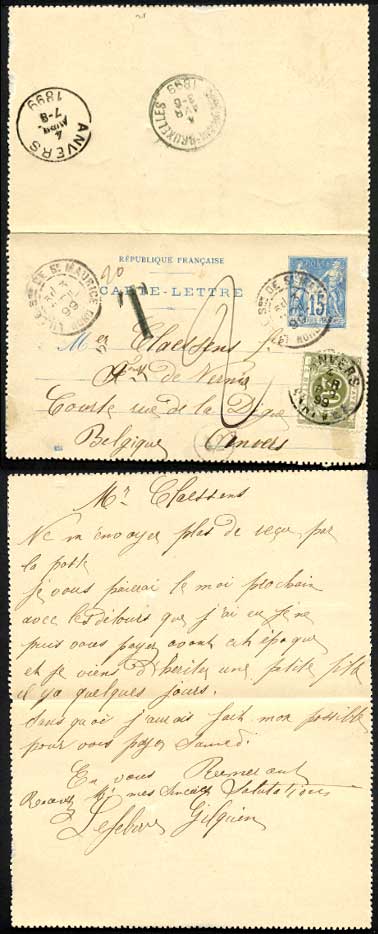 ANVERS
4
7-8
1899
BRUXELLES
4
AVR
3-6
1899
RÉPUBLIQUE FRANÇAISE
CARTE-LETTRE
15
20
T
2
LILLE Son DE St MAURICE
NORD
3
99
Mer Claessens
de Vernis
Courte rue de la Digue
Belgique Anvers
ANVERS
Mr Claessens
Ne m'envoyer plus de reçu par
la poste
je vous paierai le moi prochain
avec les détours que j'ai eu je ne
puis vous payer avant cet époque
et je viens d'hériter une petite
il y a quelques jours.
Sans quoi j'aurais fait mon possible
pour vous payer Samedi.
En vous Remerciant
Recevez Mr mes Sincères Salutations
Lefebvre Gilquin